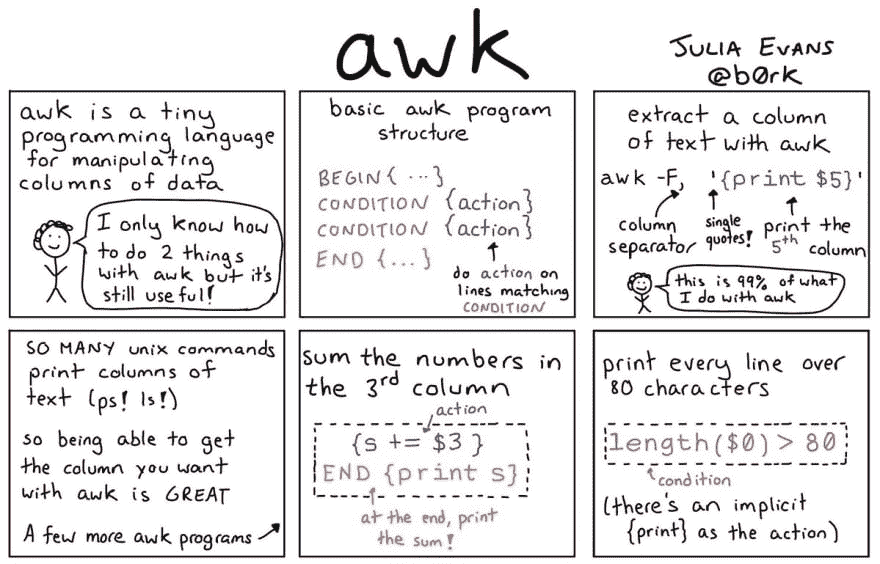 awk
JULIA EVANS
@b0rk
awk is a tiny
programming language
for manipulating
columns of data
I only know how
to do 2 things
with awk but it's
still useful!
basic awk program
structure
BEGIN{ ...}
CONDITION {action}
CONDITION {action}
END {...}
do action on
lines matching
CONDITION
extract a column
of text with awk
awk -F, '{print $5}'
column
separator
single
quotes!
print the
5th column
this is 99% of what
I do with awk
SO MANY unix commands
print columns of
text (ps! ls!)
so being able to get
the column you want
with awk is GREAT
A few more awk programs
sum the numbers in
the 3rd column
action
{s += $3 }
END {print s}
at the end, print
the sum!
print every line over
80 characters
length($0) > 80
condition
(there's an implicit
{print} as the action)